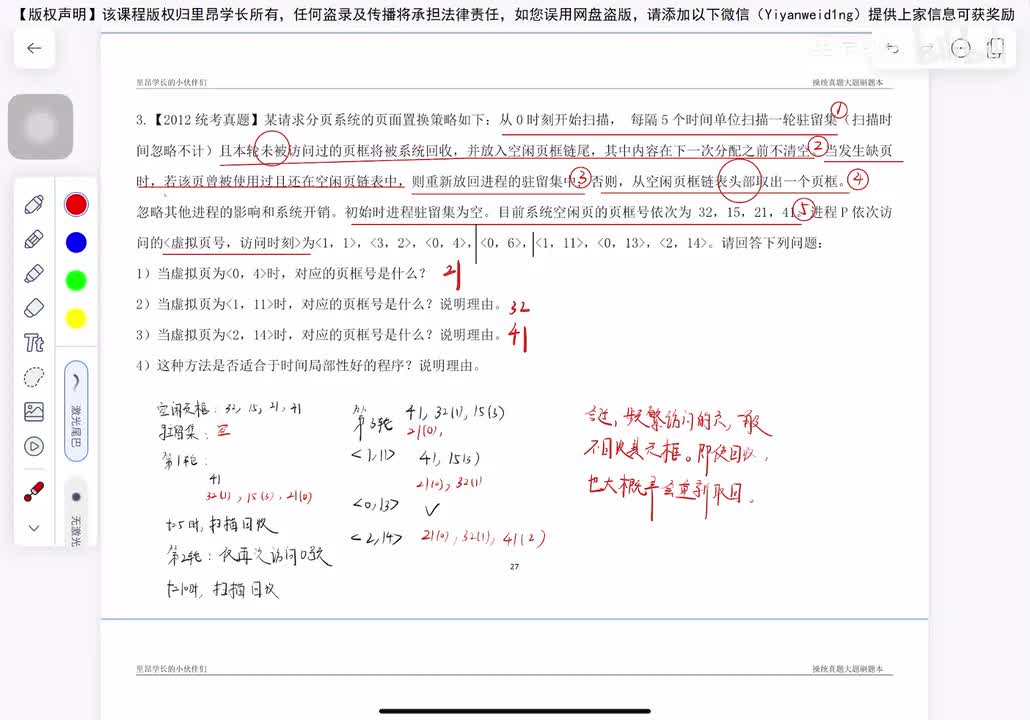 【版权声明】该课程版权归里昂学长所有，任何盗录及传播将承担法律责任，如您误用网盘盗版，请添加以下微信（Yiyanweid1ng）提供上家信息可获奖励
里昂学长的小伙伴们
操统真题大题刷题本
3.【2012 统考真题】某请求分页系统的页面置换策略如下：从 0 时刻开始扫描， 每隔 5 个时间单位扫描一轮驻留集（扫描时 ①
间忽略不计）且本轮未被访问过的页框将被系统回收，并放入空闲页框链尾，其中内容在下一次分配之前不清空。②当发生缺页
时，若该页曾被使用过且还在空闲页链表中，则重新放回进程的驻留集中；③否则，从空闲页框链表头部取出一个页框。④
忽略其他进程的影响和系统开销。初始时进程驻留集为空。目前系统空闲页的页框号依次为 32，15，21，41。⑤进程 P 依次访
问的<虚拟页号，访问时刻>为<1，1>，<3，2>，<0，4>，<0，6>，<1，11>，<0，13>，<2，14>。请回答下列问题：
1）当虚拟页为<0，4>时，对应的页框号是什么？ 21
2）当虚拟页为<1，11>时，对应的页框号是什么？说明理由。 32
3）当虚拟页为<2，14>时，对应的页框号是什么？说明理由。 41
4）这种方法是否适合于时间局部性好的程序？说明理由。
空闲页框：32，15，21，41
驻留集：空
第1轮：
41
32(1)，15(3)，21(0)
t=5时，扫描回收
第2轮：仅再次访问0号页
t=10时，扫描回收
第3轮 41，32(1)，15(3)
21(0)，
<1,11> 41，15(3)
21(0)，32(1)
<0,13> ✓
<2,14> 21(0)，32(1)，41(2)
合适，频繁访问的页，一般
不回收其页框。即使回收，
也大概率会重新取回。
27
里昂学长的小伙伴们
操统真题大题刷题本
Tt
激光尾巴
无激光